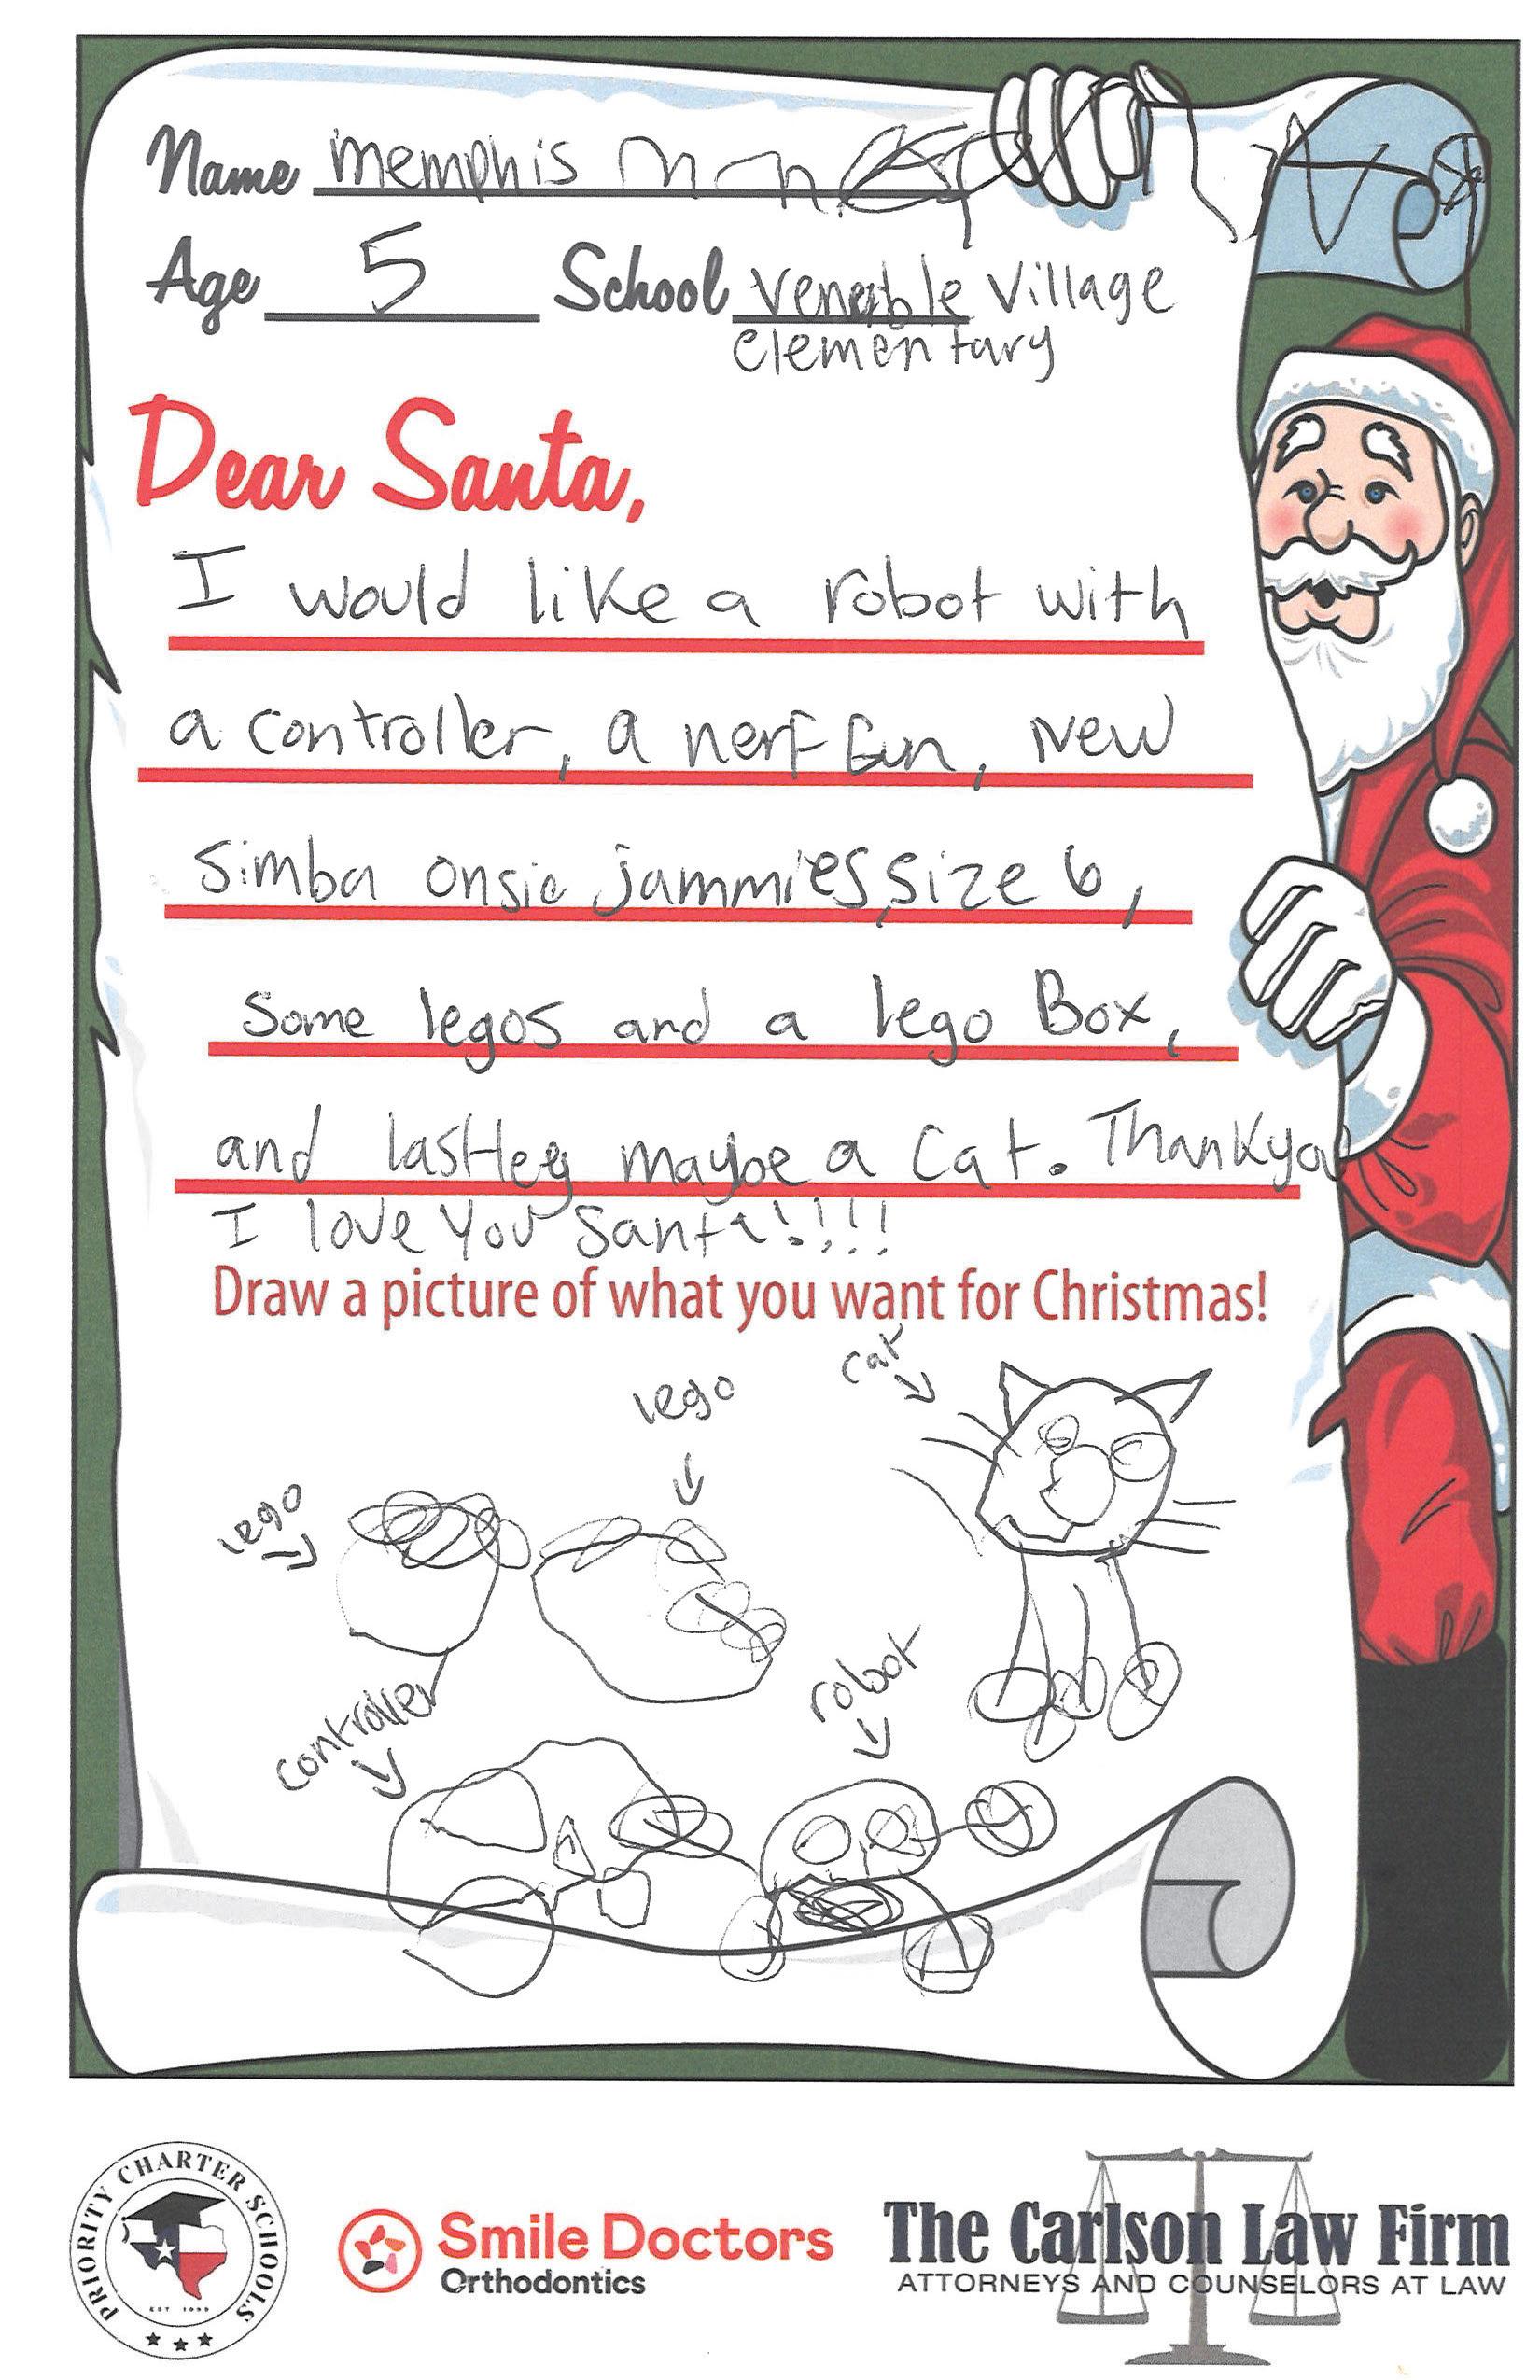 Name memphis
Age 5 School Venable Village
elementary
Dear Santa,
I would like a robot with
a controller, a nerf Gun, New
Simba onsie jammies, size 6,
Some legos and a lego Box,
and lastley maybe a Cat. Thankyou
I love You Santa!!!!!
Draw a picture of what you want for Christmas!
cat
lego
lego
robot
controller
PRIORITY CHARTER SCHOOLS
EST 1999
Smile Doctors
Orthodontics
The Carlson Law Firm
ATTORNEYS AND COUNSELORS AT LAW